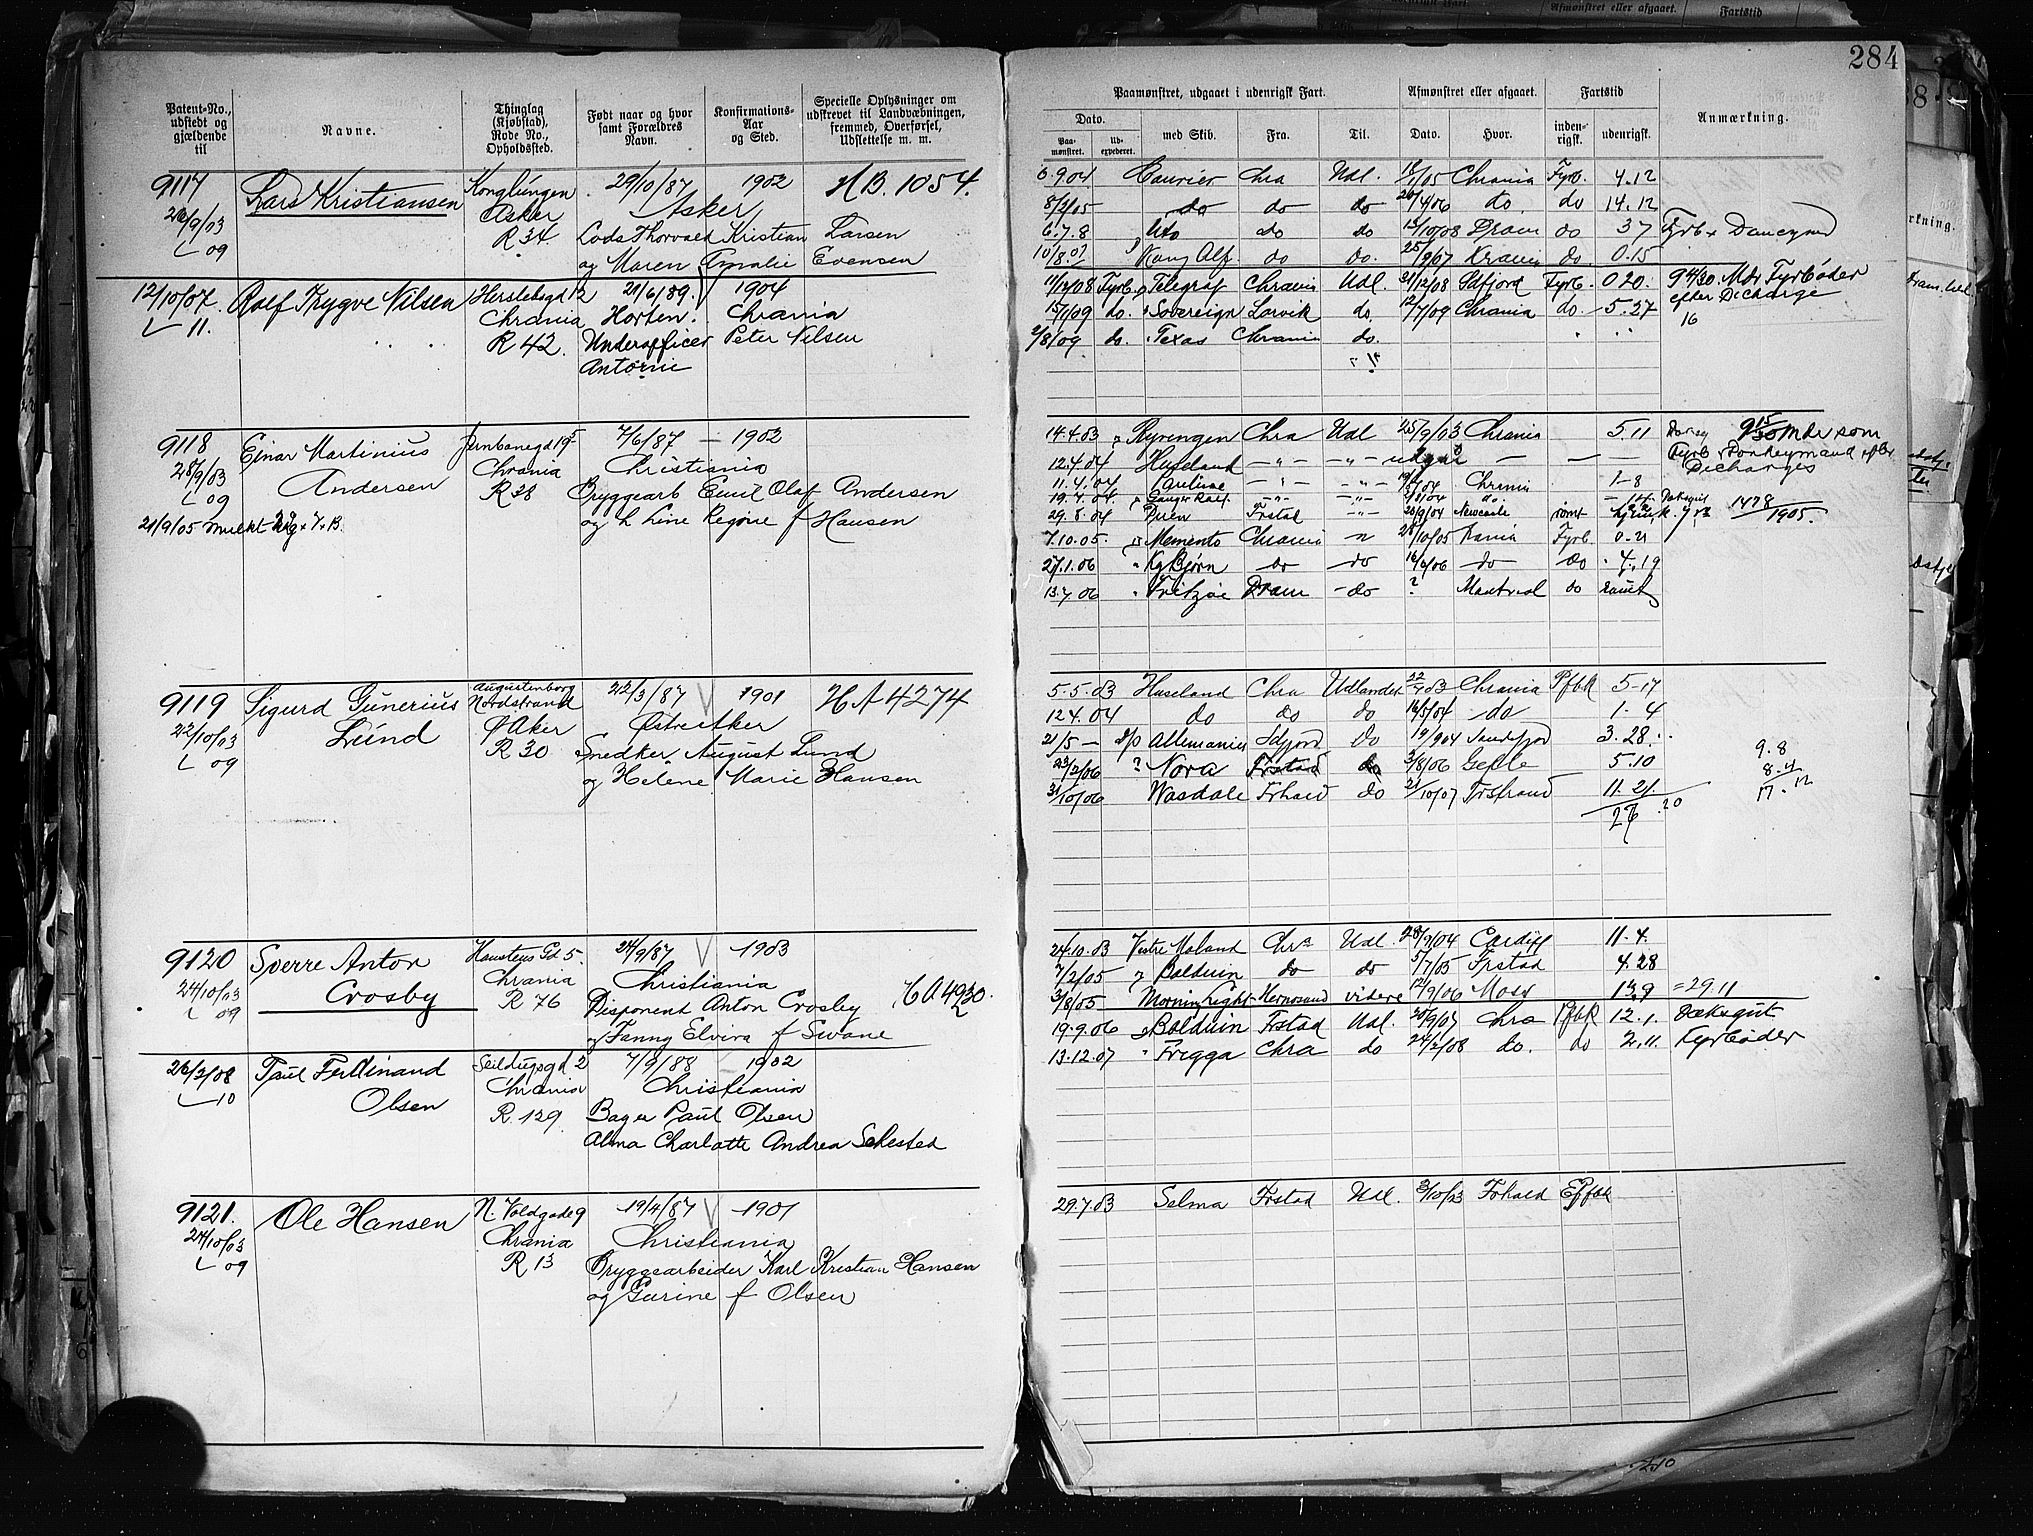 284
Patent-No., udstedt og gjældende til
Navne.
Thinglag (Kjøbstad), Rode No., Opholdssted.
Født naar og hvor samt Forældres Navn.
Konfirmations-Aar og Sted.
Specielle Oplysninger om udskrevet til Landvæbningen, fremmed, Overførsel, Udslettelse m. m.
Paamønstret, udgaaet i udenrigsk Fart.
Afmønstret eller afgaaet.
Fartstid
Anmærkning.
Dato.
Paa-mønstret.
Ud-expederet.
med Skib.
Fra.
Til.
Dato.
Hvor.
inden-rigsk.
udenrigsk.
9117 Lars Kristiansen Konglungen 29/10/87 1902 H B. 1054.
Asker Asker
09 R 34 Kristian Larsen
og Maren Evensen
6.9.04 Courier Chra Udl. Chrania Fyrb. 4.12
8/2/05 do do do /4/06 do. do 14.12
6.7.8 Uto do do /10/08 Dram do 37
Kong Alf do do. 25/9/07 do. 0.15
12/10/07. Rolf Trygve Nilsen Herslebsgd 12 21/6/89. 1904
11. Chrania Horten. Chrania
R 42. Underofficer Peter Nilsen
Antonie
11/12/08 Fyrb. Telegraf Chrania Udl. 31/12/08 Fyrb. 0 20. Mdr Fyrbøder
efter Dicharge
15/1/09 do. Sovereign Larvik do. 12/7/09 Chrania do. 5.27
16
2/8/09 do. Texas Chrania do.
9118 Ejnar Martinius Jernbanegd 19 7/6/87 – 1902
28/9/03 Andersen Chrania Christiania
09 R 28 Bryggearb Emil Olaf Andersen
21/9/05 og Line Regine f Hansen
14.4.03 Ryvingen Chra Udl 25/9/03 Chrania 5.11 Mdr som
12.4.04 Huseland Fyrb & Donkeymand efter
Dicharges
11.4.04 Chrania 1-8
19.4.04 Ganger Rolf
29.8.04 Frstad 20/9/04 Newcastle rømt 1478/1905.
7.10.05. Memento Chrania 28/10/05 Fyrb 0-21
27.1.06 Kg Bjørn do do 16/6/06 do do 4.19
13.7.06 Fritzøe Dram do ? do rømt
9119 Sigurd Gunerius Augustenborg 22/3/87 1901 H A 4274
Nordstrand
22/10/03 Lund Aker Østre Aker
09 R 30 Snedker August Lund
og Helene Marie Hansen
5.5.03 Huseland Chra Udlandet 22/9/03 Chrania Pfbk 5-17
12.4.04 do do do 16/5/04 do 1. 4
21/5 – Allemania do 19/904 Sandefjord 3.28.
23/2/06 ? Nora Frstad do 3/8/06 Gefle 5.10
31/10/06 Wasdale Frhald do 21/10/07 11.21
9.8
8.4
17.12
9120 Sverre Anton 24/9/87 1903
24/10/03 Crosby Chrania Christiania
09 R 76 Disponent Anton Crosby
og Fanny Elvira f Svane
24.10.03 Vestre Moland Chra Udl. 28/9/04 Cardiff 11.4.
7/2/05 Balduin do do 5/7/05 Frstad 4.28
3/8/05 Morning Light Hernosand videre 12/9/06 Moss 13.9 =29.11
19.9.06 Balduin Frstad Udl. 20/9/07 Chra Pfbk 12.1. Dæksgut
13.12.07 Frigga Chra do 24/2/08 do. do 2.11. Fyrbøder
26/2/08 Paul Ferdinand Seildugsgd 2 7/9/88 – 1902
10 Olsen Chrania Christiania
R. 129. Bager Paul Olsen
Alma Charlotte Andrea Sehested
9121. Ole Hansen N. Voldgade 9 19/4/87 1901
24/10/03 Chrania Christiania
09 R 13 Bryggearbeider Karl Kristian Hansen
og Gurine f Olsen
29.7.03 Selma Frstad Udl. 3/10/03 Frhald